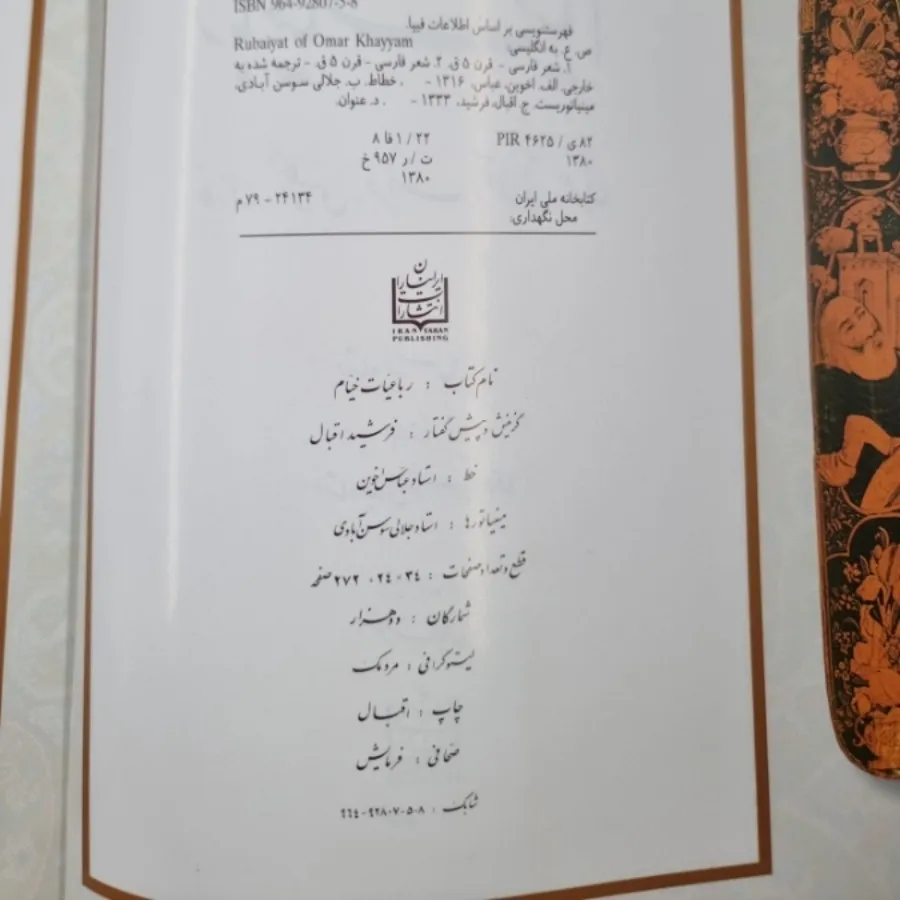 ISBN 964-92807-5-8
فهرستنویسی بر اساس اطلاعات فیپا.
ص. ع. به انگلیسی: Rubaiyat of Omar Khayyam
۱. شعر فارسی - قرن ۵ ق. ۲. شعر فارسی - قرن ۵ ق. - ترجمه شده به
خارجی. الف. اخوین، عباس، ۱۳۱۶ - ، خطاط. ب. جلالی سوسن آبادی،
مینیاتوریست. ج. اقبال، فرشید، ۱۳۳۳ - . د. عنوان.
۸۲ ی / PIR ۴۶۲۵ ۲۲ / ۱ فا ۸
۱۳۸۰ ت / ر ۹۵۷ خ
۱۳۸۰
کتابخانه ملی ایران ۲۴۱۳۴ - ۷۹ م
محل نگهداری:
انتشارات ایران
IRAN YARAN
PUBLISHING
نام کتاب : رباعیات خیام
گزینش و پیش گفتار : فرشید اقبال
خط : استاد عباس اخوین
مینیاتورها : استاد جلالی سوسن آبادی
قطع و تعداد صفحات : ۳۴×۲۴، ۲۷۲ صفحه
شمارگان : دو هزار
لیتوگرافی : مردمک
چاپ : اقبال
صحافی : فرمایش
شابک : ۸-۵-۹۲۸۰۷-۹۶۴